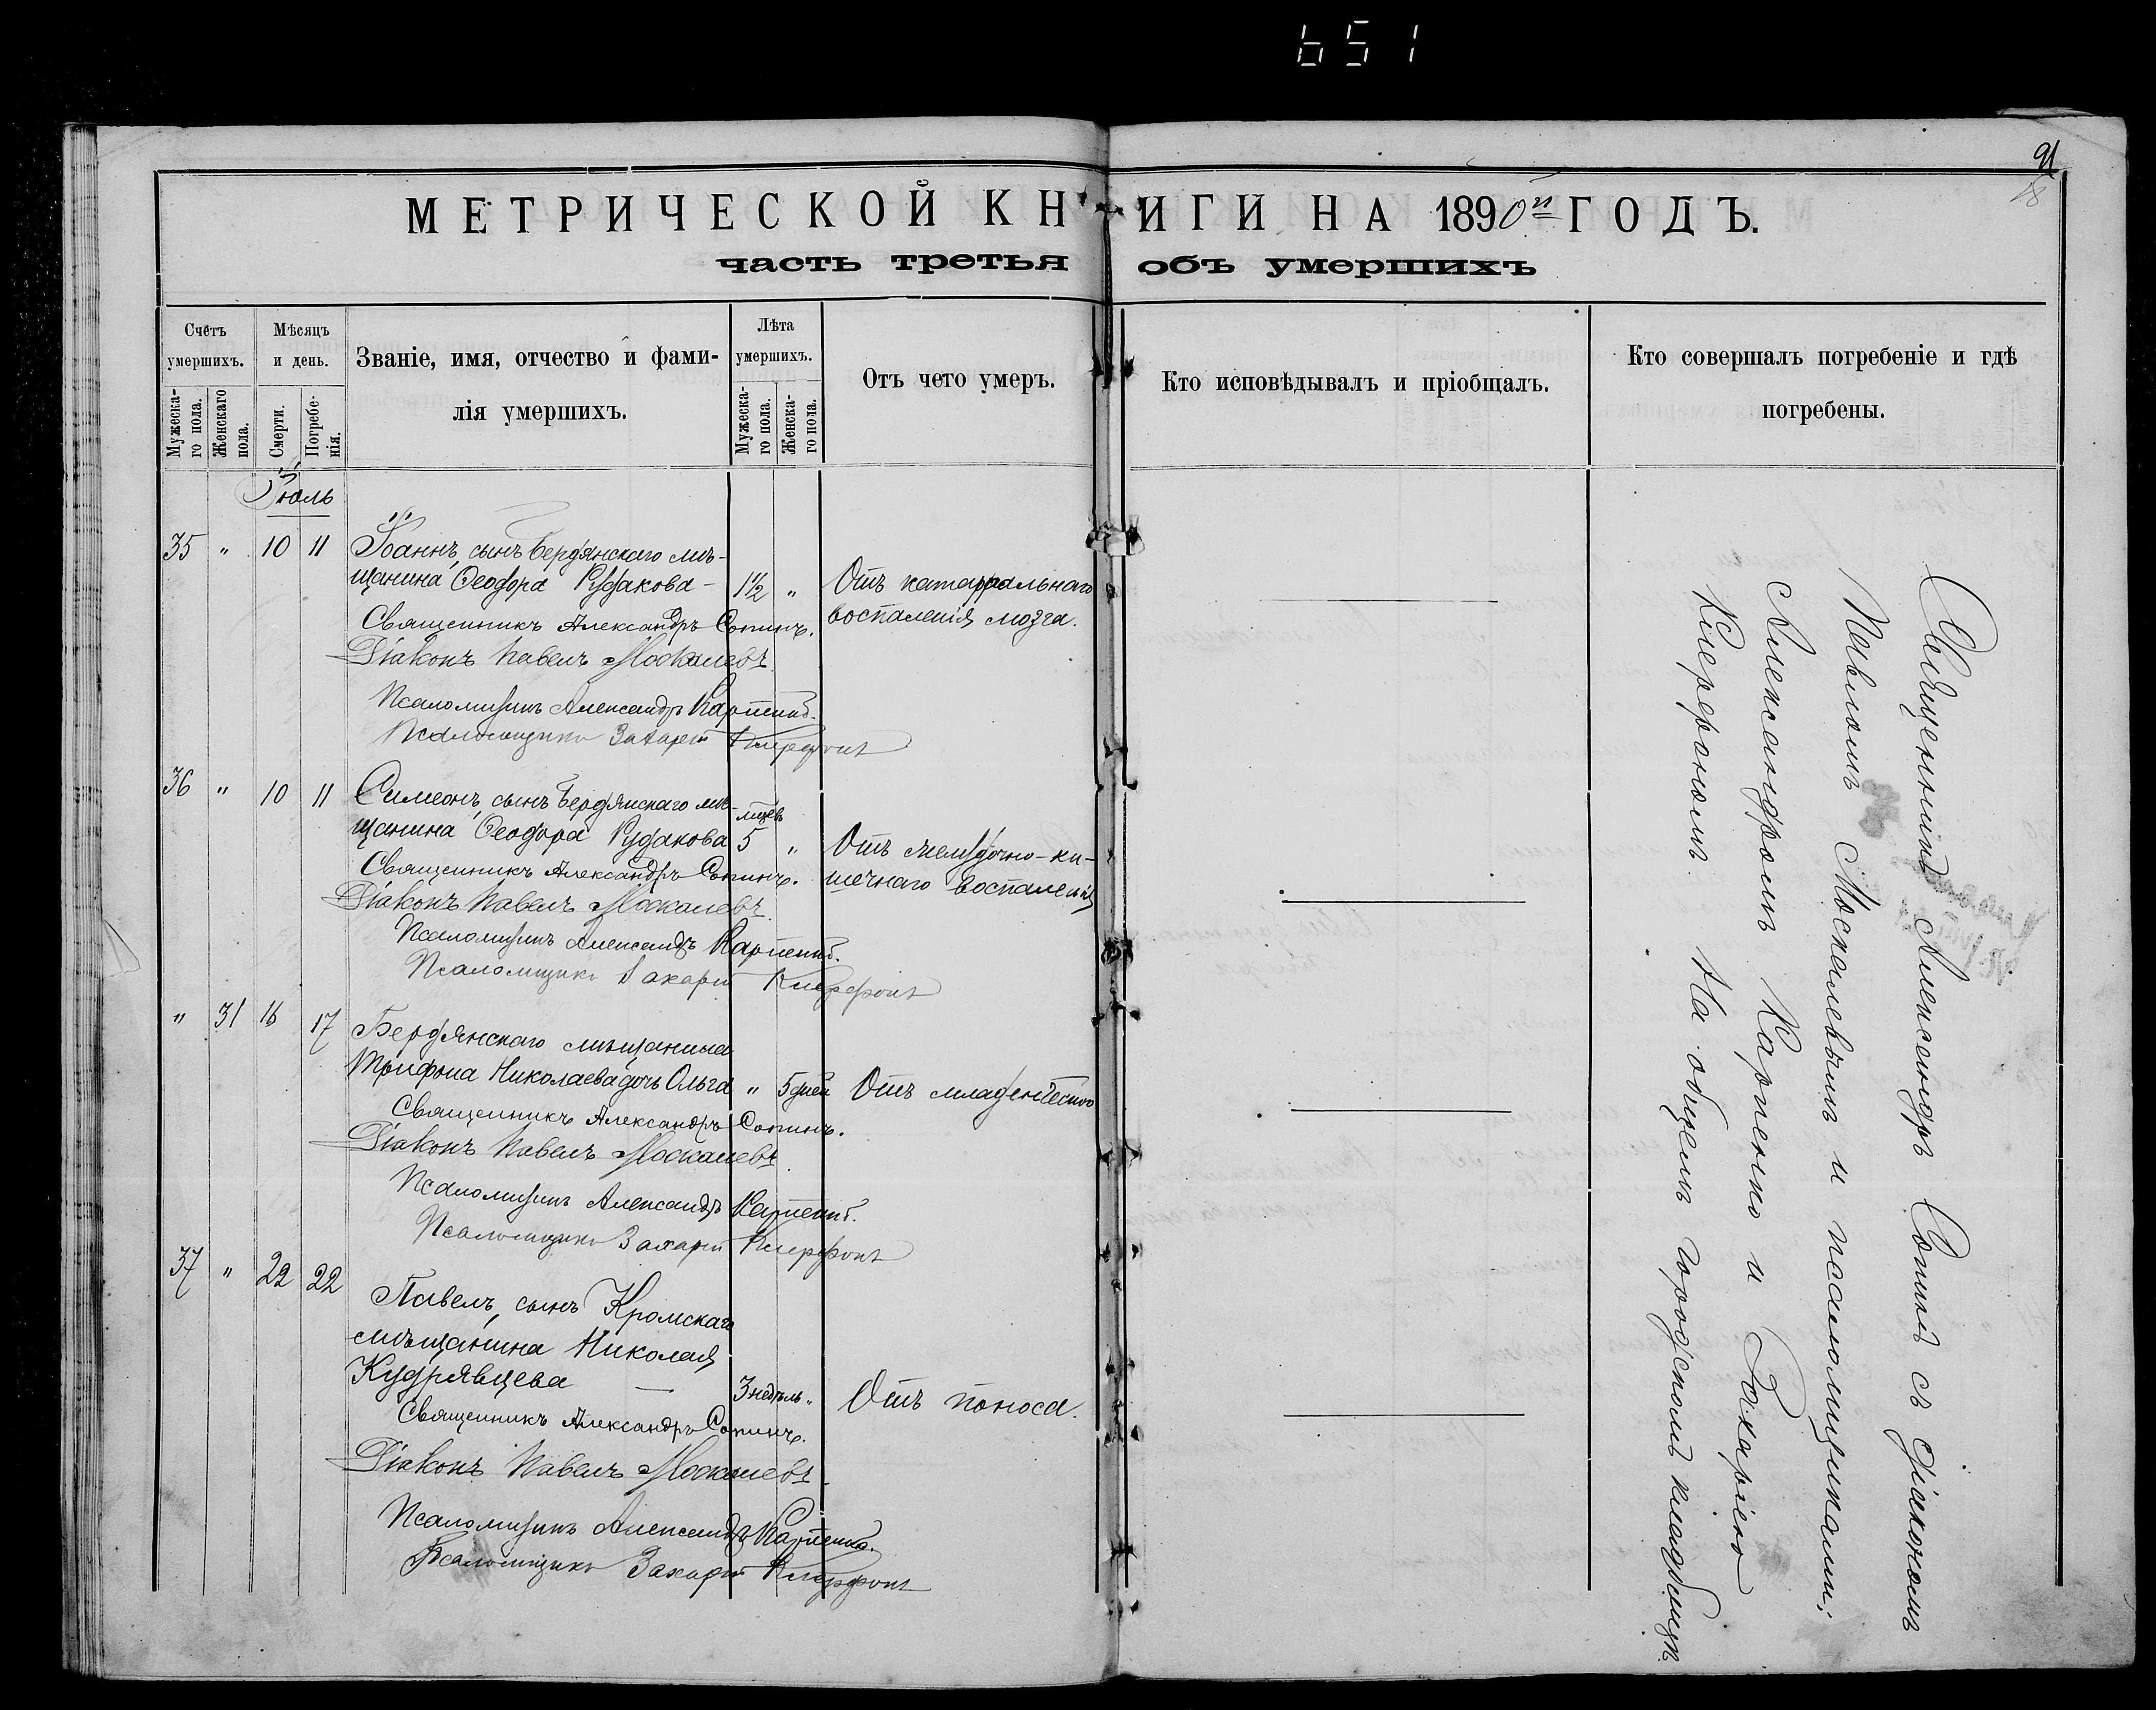 651
91
18
МЕТРИЧЕСКОЙ КНИГИ НА 1890й ГОДЪ.
часть третья объ умершихъ
Счётъ умершихъ.
Мужеска-
го пола.
Женскаго
пола.
Мѣсяцъ
и день.
Смерти.
Погребе-
нія.
Званіе, имя, отчество и фами-
лія умершихъ.
Лѣта
умершихъ.
Мужеска-
го пола.
Женска-
го пола.
Отъ чего умеръ.
Кто исповѣдывалъ и пріобщалъ.
Кто совершалъ погребеніе и гдѣ
погребены.
Іюль
35 " 10 11 Іоаннъ, сынъ Бердянскаго мѣ-
щанина Ѳеодора Рудакова - 1½ " Отъ катарральнаго
воспаленія мозга.
Священникъ Александръ Сопинъ.
Діаконъ Павелъ Москалевъ
Псаломщикъ Александръ Карпенко.
Псаломщикъ Захарій
36 " 10 11 Симеонъ, сынъ Бердянскаго мѣ-
щанина Ѳеодора Рудакова мѣсяцъ 5 " Отъ желудочно-ки-
шечнаго воспаленія
Священникъ Александръ Сопинъ.
Діаконъ Павелъ Москалевъ.
Псаломщикъ Александръ Карпенко.
Псаломщикъ Захарій
" 31 16 17 Бердянскаго мѣщанина
Трифона Николаева дочь Ольга " 5 дней Отъ младенческаго
Священникъ Александръ Сопинъ.
Діаконъ Павелъ Москалевъ.
Псаломщикъ Александръ Карпенко.
Псаломщикъ Захарій
37 " 22 22 Павелъ, сынъ Кромскаго
мѣщанина Николая
Кудрявцева — 3 недѣль " Отъ поноса.
Священникъ Александръ Сопинъ.
Діаконъ Павелъ Москалевъ.
Псаломщикъ Александръ Карпенко.
Псаломщикъ Захарій
Священникъ Александръ Сопинъ съ діакономъ
Павломъ Москалевымъ и псаломщиками:
Александромъ Карпенко и Захаріею
На общемъ городскомъ кладбищѣ.